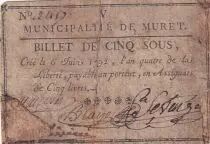 No. 2417 V
MUNICIPALITÉ DE MURET.
BILLET DE CINQ SOUS,
Créé le 6 Juin 1792, l'an quatre de la
Liberté, payable au porteur, en Assignats
de Cinq livres.